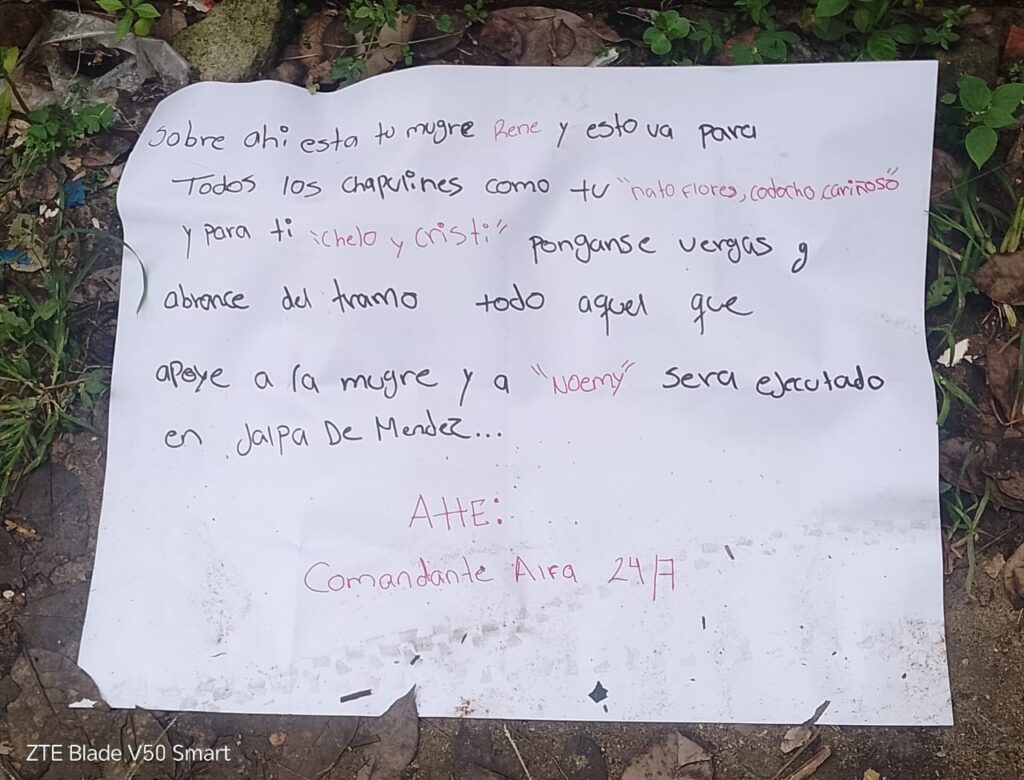 Sobre ahi esta tu mugre Rene y esto va para
Todos los chapulines como tu "nato flores, codocho cariñoso"
y para ti "chelo y cristi" ponganse vergas y
abrance del tramo todo aquel que
apoye a la mugre y a "NOEMY" sera ejecutado
en Jalpa De Mendez...
Atte:
Comandante Alfa 24/7
ZTE Blade V50 Smart